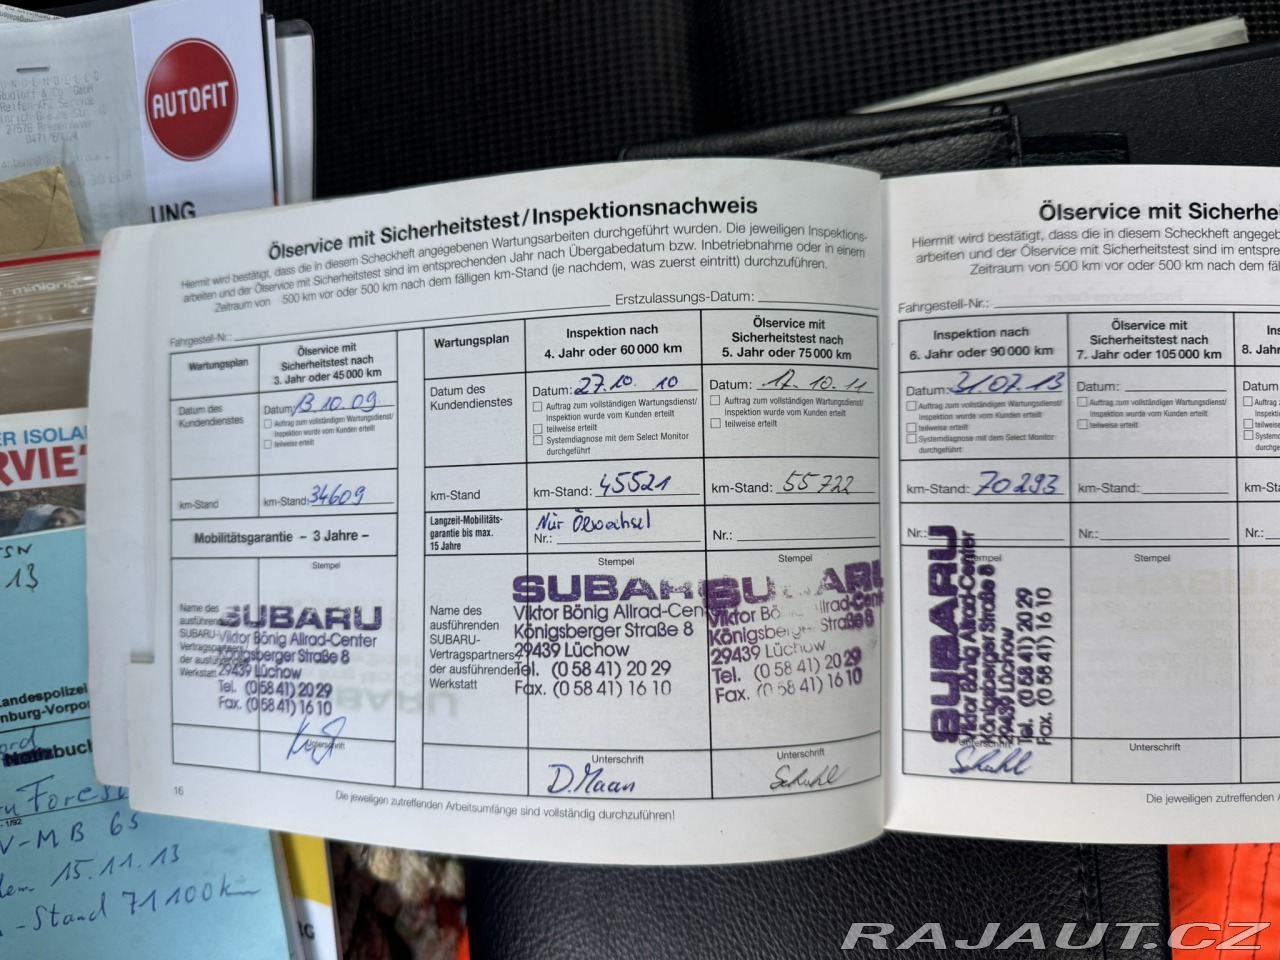 AUTOFIT
UNG
Ölservice mit Sicherheitstest/Inspektionsnachweis
Hiermit wird bestätigt, dass die in diesem Scheckheft angegebenen Wartungsarbeiten durchgeführt wurden. Die jeweiligen Inspektions-
arbeiten und der Ölservice mit Sicherheitstest sind im entsprechenden Jahr nach Übergabedatum bzw. Inbetriebnahme oder in einem
Zeitraum von 500 km vor oder 500 km nach dem fälligen km-Stand (je nachdem, was zuerst eintritt) durchzuführen.
Fahrgestell-Nr.: Erstzulassungs-Datum:
Wartungsplan
Ölservice mit
Sicherheitstest nach
3. Jahr oder 45 000 km
Datum des
Kundendienstes
Datum: 13 10 09
Auftrag zum vollständigen Wartungsdienst/
Inspektion wurde vom Kunden erteilt
teilweise erteilt
km-Stand
km-Stand: 34609
Mobilitätsgarantie – 3 Jahre –
Stempel
Name des
ausführenden
SUBARU-
Vertragspartners
der ausführenden
Werkstatt
SUBARU
Viktor Bönig Allrad-Center
Königsberger Straße 8
29439 Lüchow
Tel. (0 58 41) 20 29
Fax. (0 58 41) 16 10
Unterschrift
16
Wartungsplan
Inspektion nach
4. Jahr oder 60 000 km
Ölservice mit
Sicherheitstest nach
5. Jahr oder 75 000 km
Datum des
Kundendienstes
Datum: 27.10. 10
Auftrag zum vollständigen Wartungsdienst/
Inspektion wurde vom Kunden erteilt
teilweise erteilt
Systemdiagnose mit dem Select Monitor
durchgeführt
Datum: 17. 10. 11
Auftrag zum vollständigen Wartungsdienst/
Inspektion wurde vom Kunden erteilt
teilweise erteilt
km-Stand
km-Stand: 45521
km-Stand: 55722
Langzeit-Mobilitäts-
garantie bis max.
15 Jahre
Nur Ölwechsel
Nr.:
Nr.:
Stempel
Stempel
Name des
ausführenden
SUBARU-
Vertragspartners
der ausführenden
Werkstatt
SUBARU
Viktor Bönig Allrad-Cent
Königsberger Straße 8
29439 Lüchow
Tel. (0 58 41) 20 29
Fax. (0 58 41) 16 10
Unterschrift
D. Maan
SU ARU
Viktor Bö llrad-Cent
Königsberger Straße 8
29439 Lüchow
Tel. (0 58 41) 20 29
Fax. (0 58 41) 16 10
Unterschrift
Schuhl
Die jeweiligen zutreffenden Arbeitsumfänge sind vollständig durchzuführen!
Ölservice mit Sicherhe
Hiermit wird bestätigt, dass die in diesem Scheckheft angegeb
arbeiten und der Ölservice mit Sicherheitstest sind im entspre
Zeitraum von 500 km vor oder 500 km nach dem fäl
Fahrgestell-Nr.:
Inspektion nach
6. Jahr oder 90 000 km
Ölservice mit
Sicherheitstest nach
7. Jahr oder 105 000 km
8. Jahr
Datum: 31 07. 13
Auftrag zum vollständigen Wartungsdienst/
Inspektion wurde vom Kunden erteilt
teilweise erteilt
Systemdiagnose mit dem Select Monitor
durchgeführt
Datum:
Auftrag zum vollständigen Wartungsdienst/
Inspektion wurde vom Kunden erteilt
teilweise erteilt
Datum:
km-Stand: 70293
km-Stand:
km-S
Nr.:
Nr.:
Nr.:
Stempel
Stempel
SUBARU
Viktor Bönig Allrad-Center
Königsberger Straße 8
29439 Lüchow
Tel. (0 58 41) 20 29
Fax. (0 58 41) 16 10
Unterschrift
Schuhl
Unterschrift
Die jeweiligen zutreffenden A
minigrip
ER ISOLA
RVIE
13
andespolizei
nburg-Vorpo
Notizbuch
Forest
V-MB 65
15.11.13
-Stand 71100km
RAJAUT.CZ